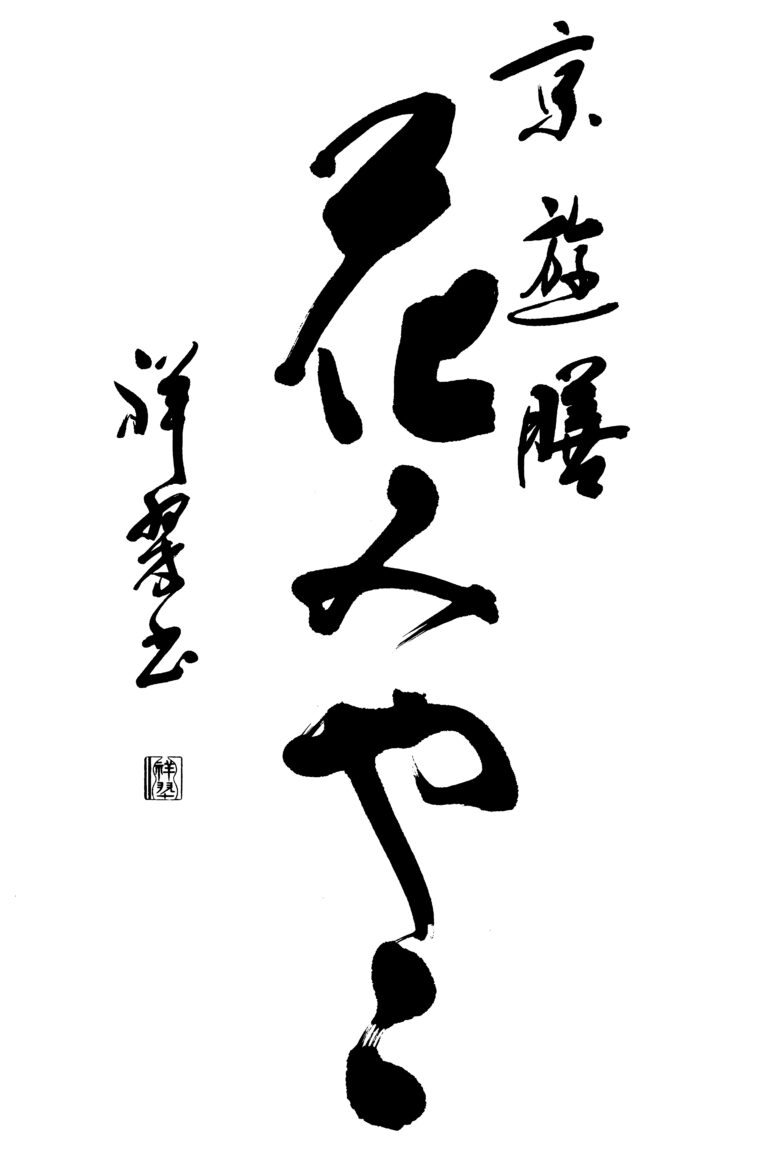 京遊膳
花みやこ
祥翠書
祥翠